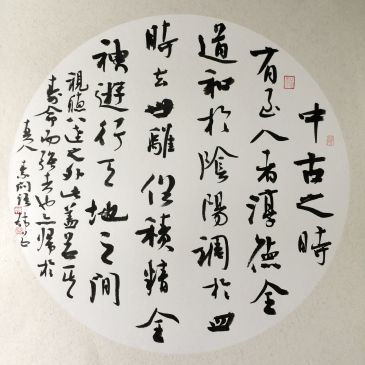 中古之時
有至人者淳德全
道和於陰陽調於四
時去世離俗積精全
神遊行天地之間
視聽八達之外此蓋益其
壽命而強者也亦歸於
真人 素問